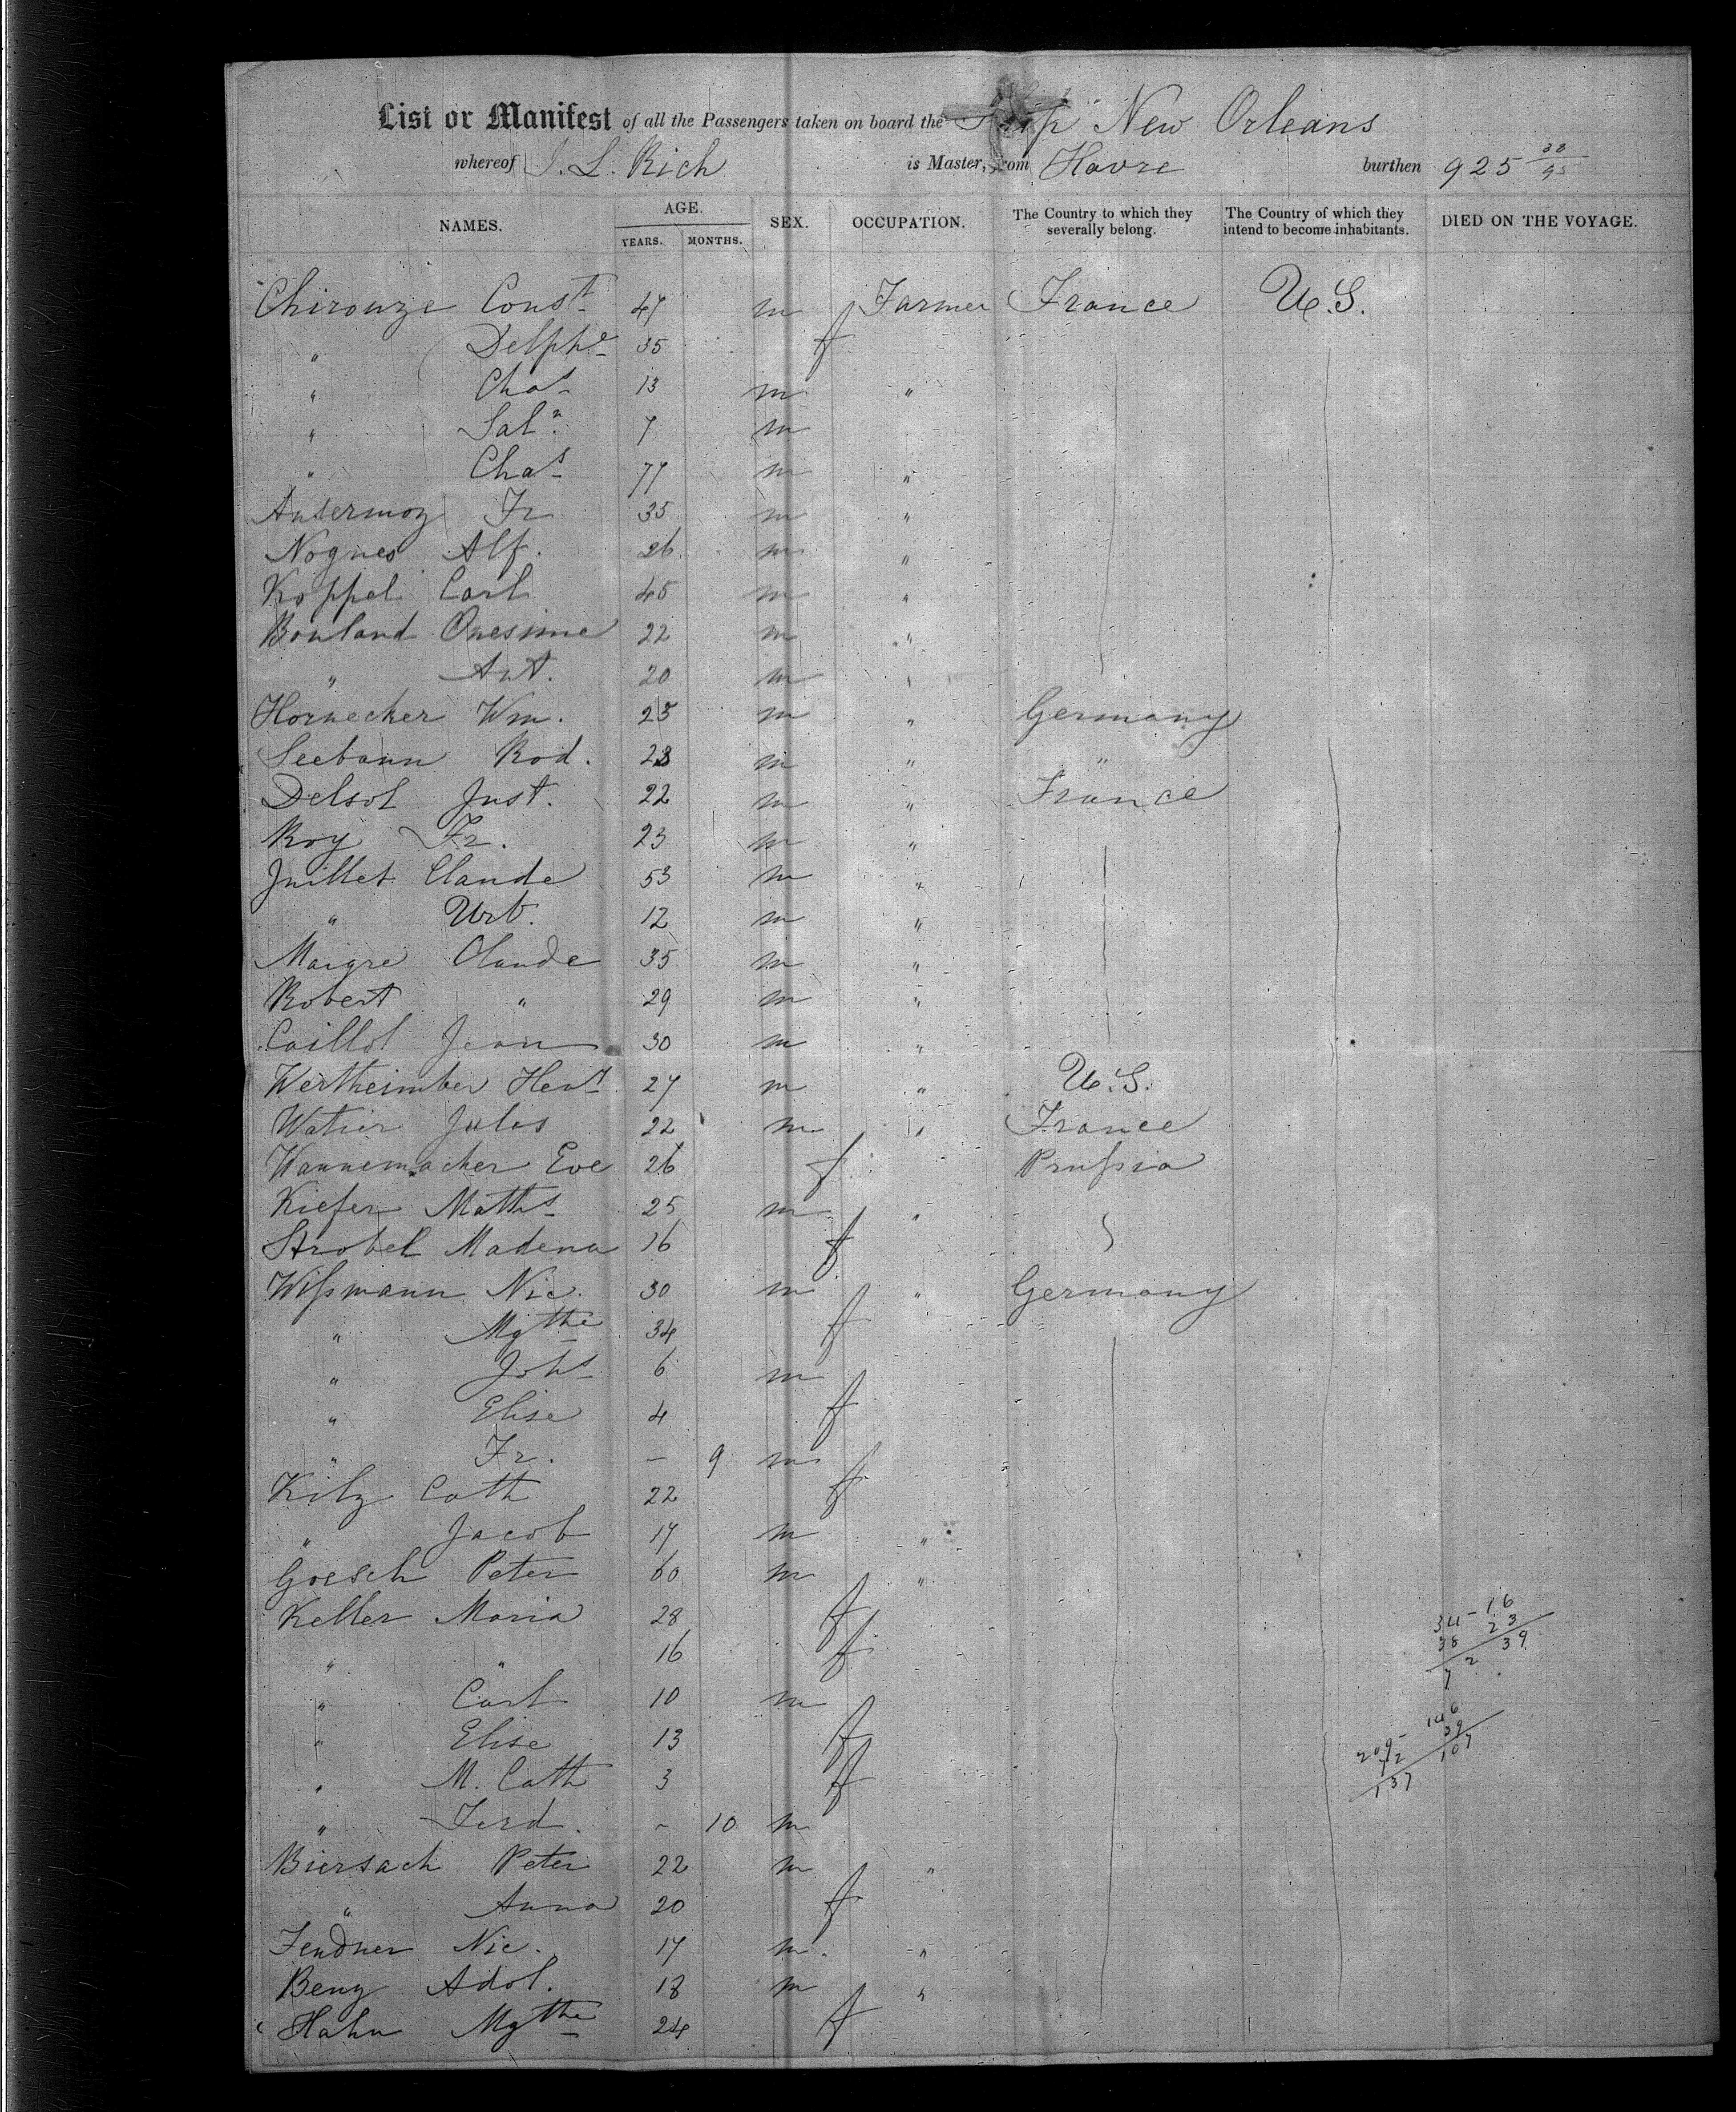 List or Manifest of all the Passengers taken on board the Ship New Orleans
whereof J. L. Rich is Master, from Havre burthen 925 38/95
NAMES. AGE. SEX. OCCUPATION. The Country to which they severally belong. The Country of which they intend to become inhabitants. DIED ON THE VOYAGE.
YEARS. MONTHS.
Chirouze Const 47 m Farmer France U.S.
" Delphe 35 f
" Chas 13 m "
" Saln. 7 m
" Chas 77 m "
Ansermoz Fr 35 m "
Nognes Alf. 26 m "
Koppel Carl 45 m "
Bouland Onesime 22 m "
" Ant. 20 m "
Hornecker Wm. 25 m " Germany
Seebann Rod. 28 m " "
Delsol Just. 22 m " France
Roy Fr. 23 m "
Juillet Claude 53 m "
" Urb. 12 m "
Maigre Claude 35 m "
Robert " 29 m "
Caillol Jean 30 m "
Wertheimber Hert 27 m " U.S.
Watier Jules 22 m " France
Wannemacher Eve 26 f Prussia
Kiefer Maths 25 m "
Strobel Madena 16 f
Wissmann Nic. 30 m " Germany
" Mgthe 34 f
" Johs 6 m
" Elise 4 f
" Fr. - 9 m
Kilz Cath 22 f
" Jacob 17 m "
Goesch Peter 60 m "
Keller Maria 28 f
" " 16 f
34-16
38 23
72 39
" Carl 10 m
" Elise 13 f
209- 146
72 39
137 107
" M. Cath 3 f
" Ferd. - 10 m
Biersach Peter 22 m "
" Anna 20 f
Fendner Nic. 17 m "
Benz Adol. 18 m "
Hahn Mgthe 24 f